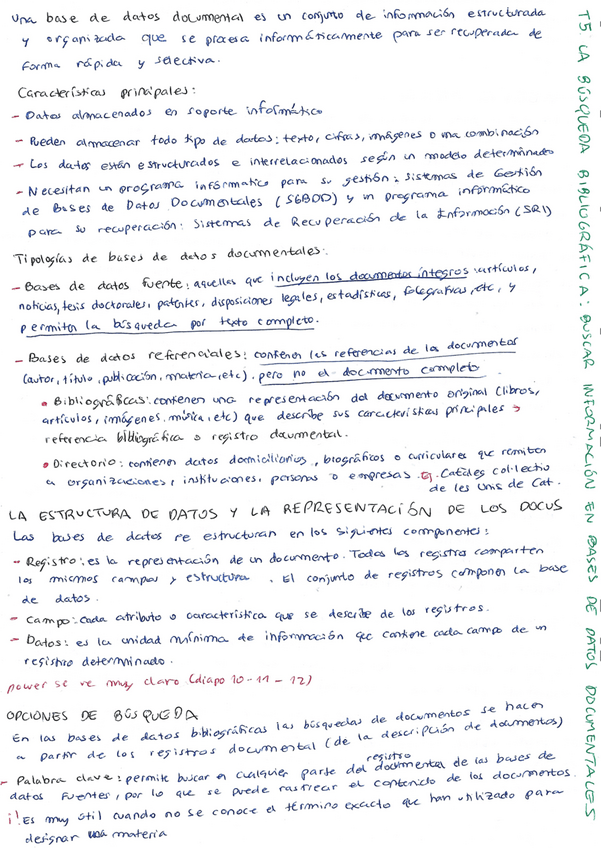 T5. LA BÚSQUEDA BIBLIOGRÁFICA: BUSCAR INFORMACIÓN EN BASES DE DATOS DOCUMENTALES
Una base de datos documental es un conjunto de información estructurada
y organizada que se procesa informáticamente para ser recuperada de
forma rápida y selectiva.
Características principales:
- Datos almacenados en soporte informático
- Pueden almacenar todo tipo de datos: texto, cifras, imágenes o una combinación
- Los datos están estructurados e interrelacionados según un modelo determinado
- Necesitan un programa informático para su gestión: Sistemas de Gestión
de Bases de Datos Documentales (SGBDD) y un programa informático
para su recuperación: Sistemas de Recuperación de la Información (SRI)
Tipologías de bases de datos documentales:
- Bases de datos fuente: aquellas que incluyen los documentos íntegros: artículos,
noticias, tesis doctorales, patentes, disposiciones legales, estadísticas, fotografías, etc, y
permiten la búsqueda por texto completo.
- Bases de datos referenciales: contienen las referencias de los documentos
(autor, título, publicación, materia, etc). pero no el documento completo
• Bibliográficas: contienen una representación del documento original (libros,
artículos, imágenes, música, etc) que describe sus características principales →
referencia bibliográfica o registro documental.
• Directorio: contienen datos domiciliarios, biográficos o curriculares que remiten
a organizaciones, instituciones, personas o empresas. Eg. Catàleg col·lectiu
de les Unis de Cat.
LA ESTRUCTURA DE DATOS Y LA REPRESENTACIÓN DE LOS DOCUS
Las bases de datos se estructuran en los siguientes componentes:
- Registro: es la representación de un documento. Todos los registros comparten
los mismos campos y estructura. El conjunto de registros componen la base
de datos.
- Campo: cada atributo o característica que se describe de los registros.
- Datos: es la unidad mínima de información que contiene cada campo de un
registro determinado.
power se ve muy claro (diapo 10-11-12)
OPCIONES DE BÚSQUEDA
En las bases de datos bibliográficas las búsquedas de documentos se hacen
a partir de los registros documental (de la descripción de documentos)
- Palabra clave: permite buscar en cualquier parte del registro documental de las bases de
datos fuentes, por lo que se puede rastrear el contenido de los documentos.
¡! Es muy útil cuando no se conoce el término exacto que han utilizado para
designar una materia